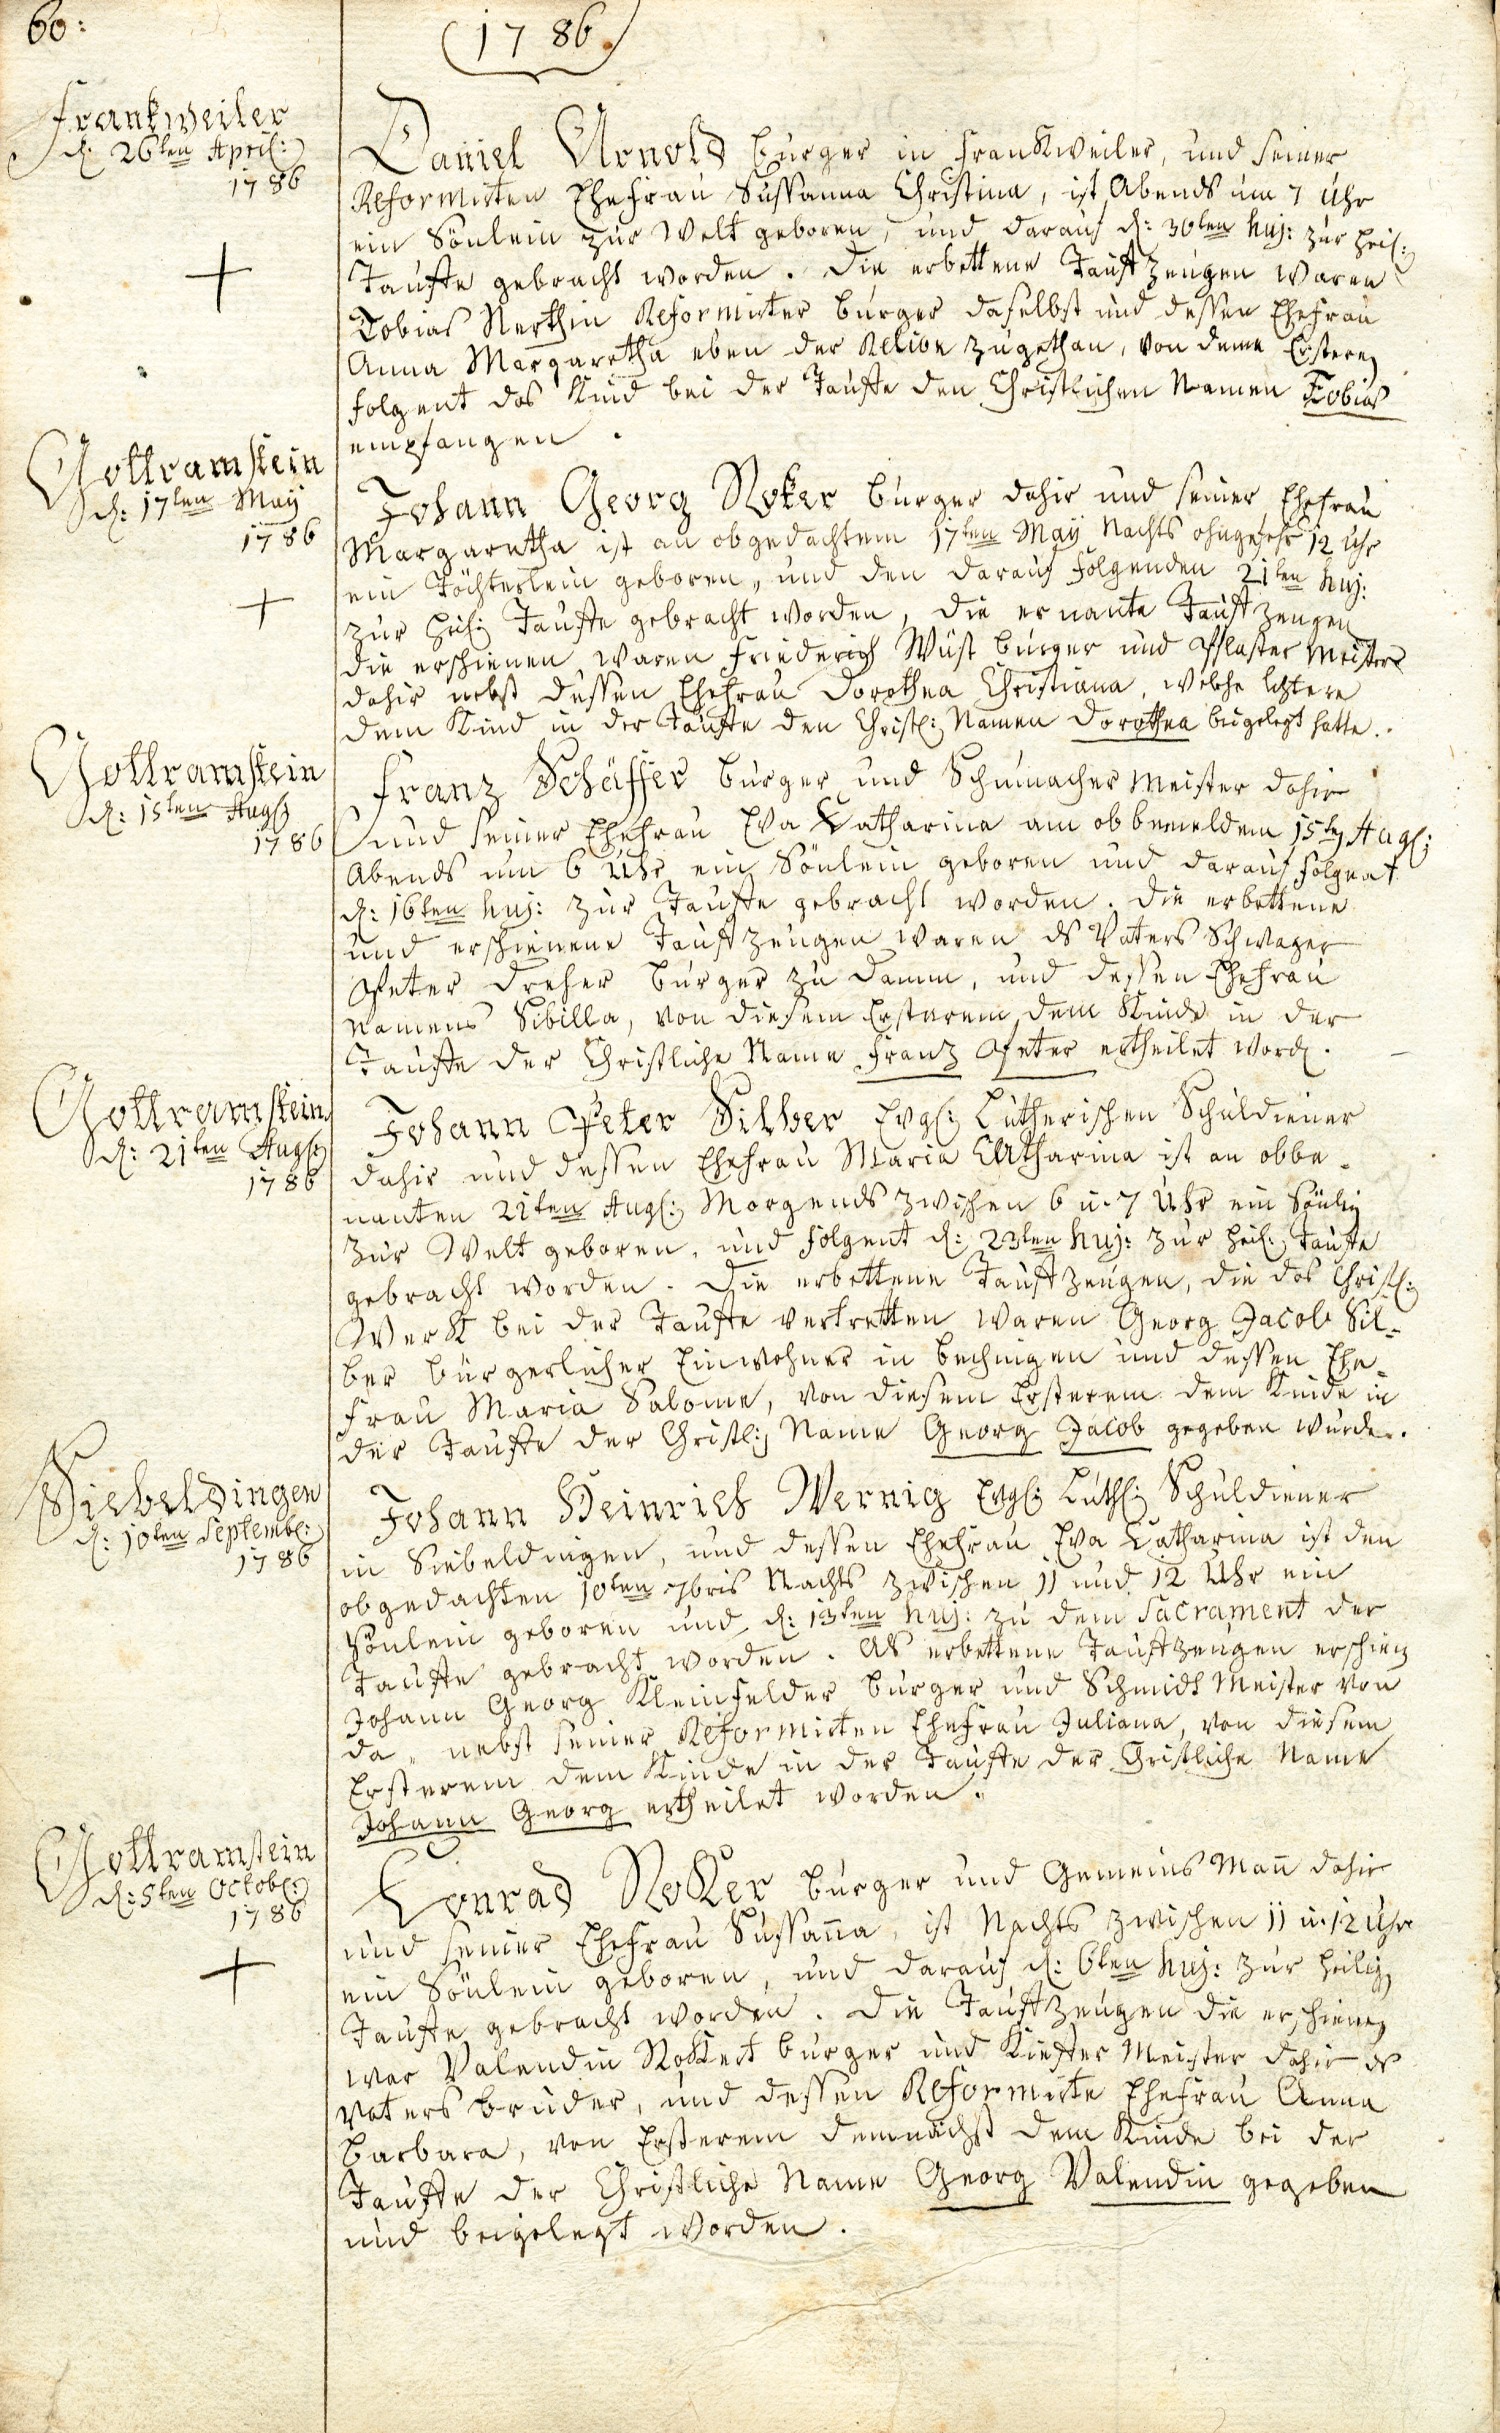 60:
1786.
Frankweiler
d. 26ten April:
1786
Daniel Arnold burger in Frankweiler, und seiner
Reformirten Ehefrau Sussanna Christina, ist Abends um 7 Uhr
ein Sönlein zur Welt geboren, und darauf d: 30ten huj: zur heil:
Tauffe gebracht worden. Die erbettene Tauffzeugen waren
Tobias Nerthin Reformirter burger daselbst und dessen Ehefrau
Anna Margaretha eben der Relion zugethan, von deme Erstere
folgent das Kind bei der Tauffe den Christlichen Namen Tobias
empfangen.
Gottramstein
d: 17ten May
1786
Johann Georg Roker burger dahir und seiner Ehefrau
Margaretha ist an obgedachtem 17ten May Nachts ohngefehr 12 Uhr
ein Töchterlein geboren, und den darauf folgenden 21ten huj:
zur heil: Tauffe gebracht worden, die ernante Tauffzeugen
die erschienen waren Friederich Wüst burger und Pflaster Meister
dahir nebst dessen Ehefrau Dorothea Christiana, welche letztere
dem Kind in der Tauffe den Christl: Namen Dorothea beigelegt hatte.
Gottramstein
d: 15ten Augs
1786
Franz Schäffer burger und Schumacher Meister dahir
und seiner Ehefrau Eva Catharina am obbemeldem 15ten Augs:
Abends um 6 Uhr ein Sönlein geboren und darauf folgent
d: 16ten huj: zur Tauffe gebracht worden. Die erbettene
und erschienene Tauffzeugen waren ds Vaters Schwager
Peter Dreher burger zu Damm, und dessen Ehefrau
Namens Sibilla, von diesem Ersterem dem Kinde in der
Tauffe der Christliche Name Franz Peter ertheilet word.
Gottramstein
d: 21ten Augs
1786
Johann Peter Silber Evgl: Lutherischen Schuldiener
dahir und dessen Ehefrau Maria Catharina ist an obbe-
nanten 21ten Augs: Morgends zwischen 6 u. 7 Uhr ein Sönlein
zur Welt geboren, und folgent d: 23ten huj: zur heil: Tauffe
gebracht worden. Die erbettene Tauffzeugen, die das Christl:
Werk bei der Tauffe vertretten waren Georg Jacob Sil-
ber bürgerlicher Einwohner in bechingen und dessen Ehe-
frau Maria Salome, von diesem Ersterem dem Kinde in
der Tauffe der Christl: Name Georg Jacob gegeben wurde.
Siebeldingen
d: 10ten Septembr:
1786
Johann Heinrich Wernig Evgl: Luthl: Schuldiener
in Siebeldingen, und dessen Ehefrau Eva Catharina ist den
obgedachten 10ten 7bris Nachts zwischen 11 und 12 Uhr ein
Sönlein geboren und d: 13ten huj: zu dem Sacrament der
Tauffe gebracht worden. Als erbettene Tauffzeugen erschien
Johann Georg Kleinfelder burger und Schmidt Meister von
da, nebst seiner Reformirten Ehefrau Juliana, von diesem
Ersterem dem Kinde in der Tauffe der Christliche Name
Johann Georg ertheilet worden.
Gottramstein
d: 5ten Octob:
1786
Conrad Roker burger und Gemeins Mann dahir
und seiner Ehefrau Sussanna, ist Nachts zwischen 11 u. 12 Uhr
ein Sönlein geboren, und darauf d: 6ten huj: zur heilig
Tauffe gebracht worden. Die Tauffzeugen die erschienen
war Valendin Rokert burger und Kieffer Meister dahir ds
Vaters bruder, und dessen Reformirte Ehefrau Anna
barbara, von Ersterem demnächst dem Kinde bei der
Tauffe der Christliche Name Georg Valendin gegeben
und beigelegt worden.